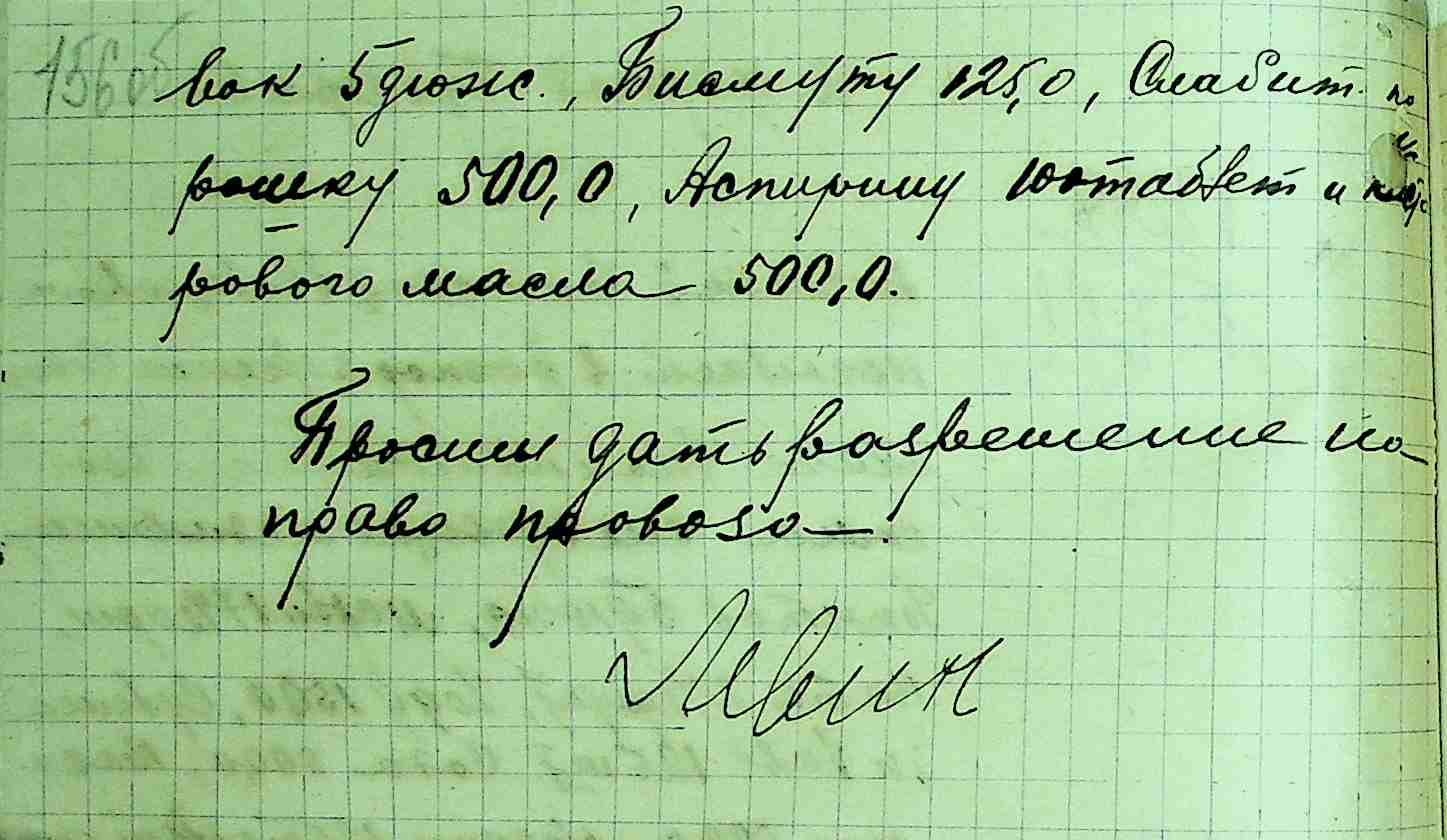 156об
вок 5 дюж., Бисмуту 125,0, Слабит. по
рошку 500,0, Аспирину 100 таблет и
рового масла 500,0.
Просим дать разрешение на
право провоза.
Левин